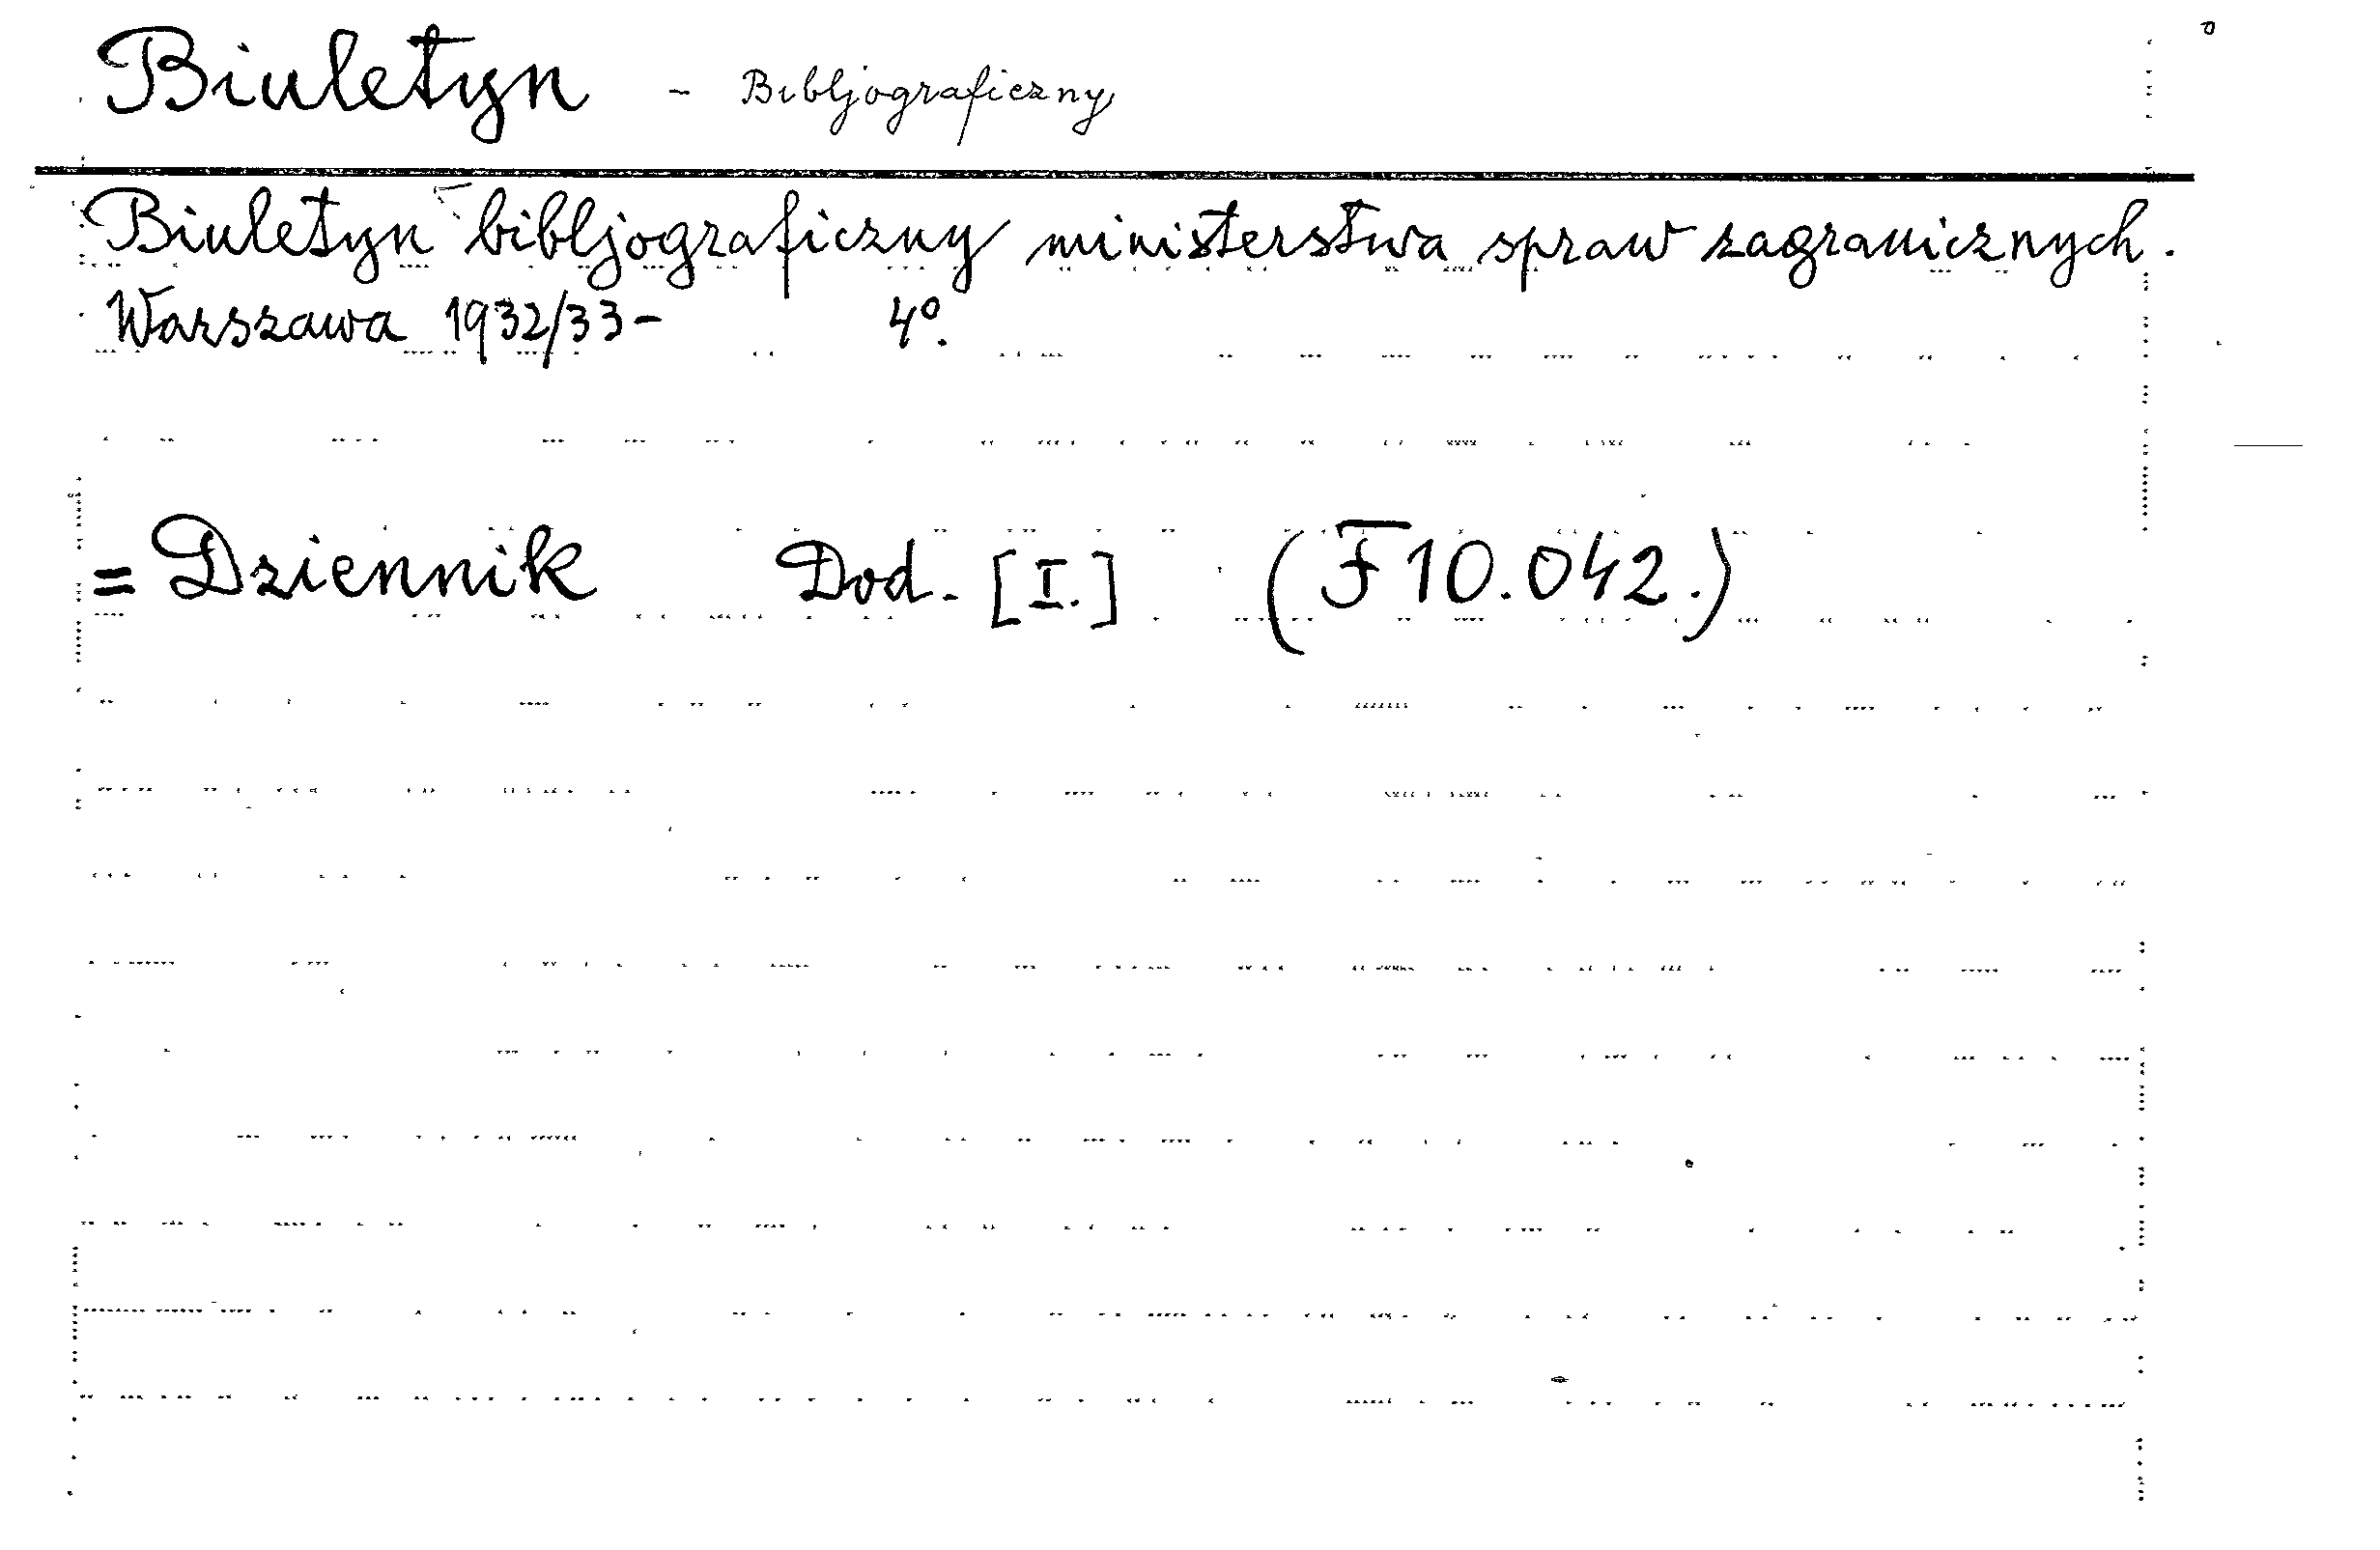 Biuletyn - Bibljograficzny
Biuletyn bibljograficzny ministerstwa spraw zagranicznych.
Warszawa 1932/33- 4º.
= Dziennik Dod. [I.] (F10.042.)